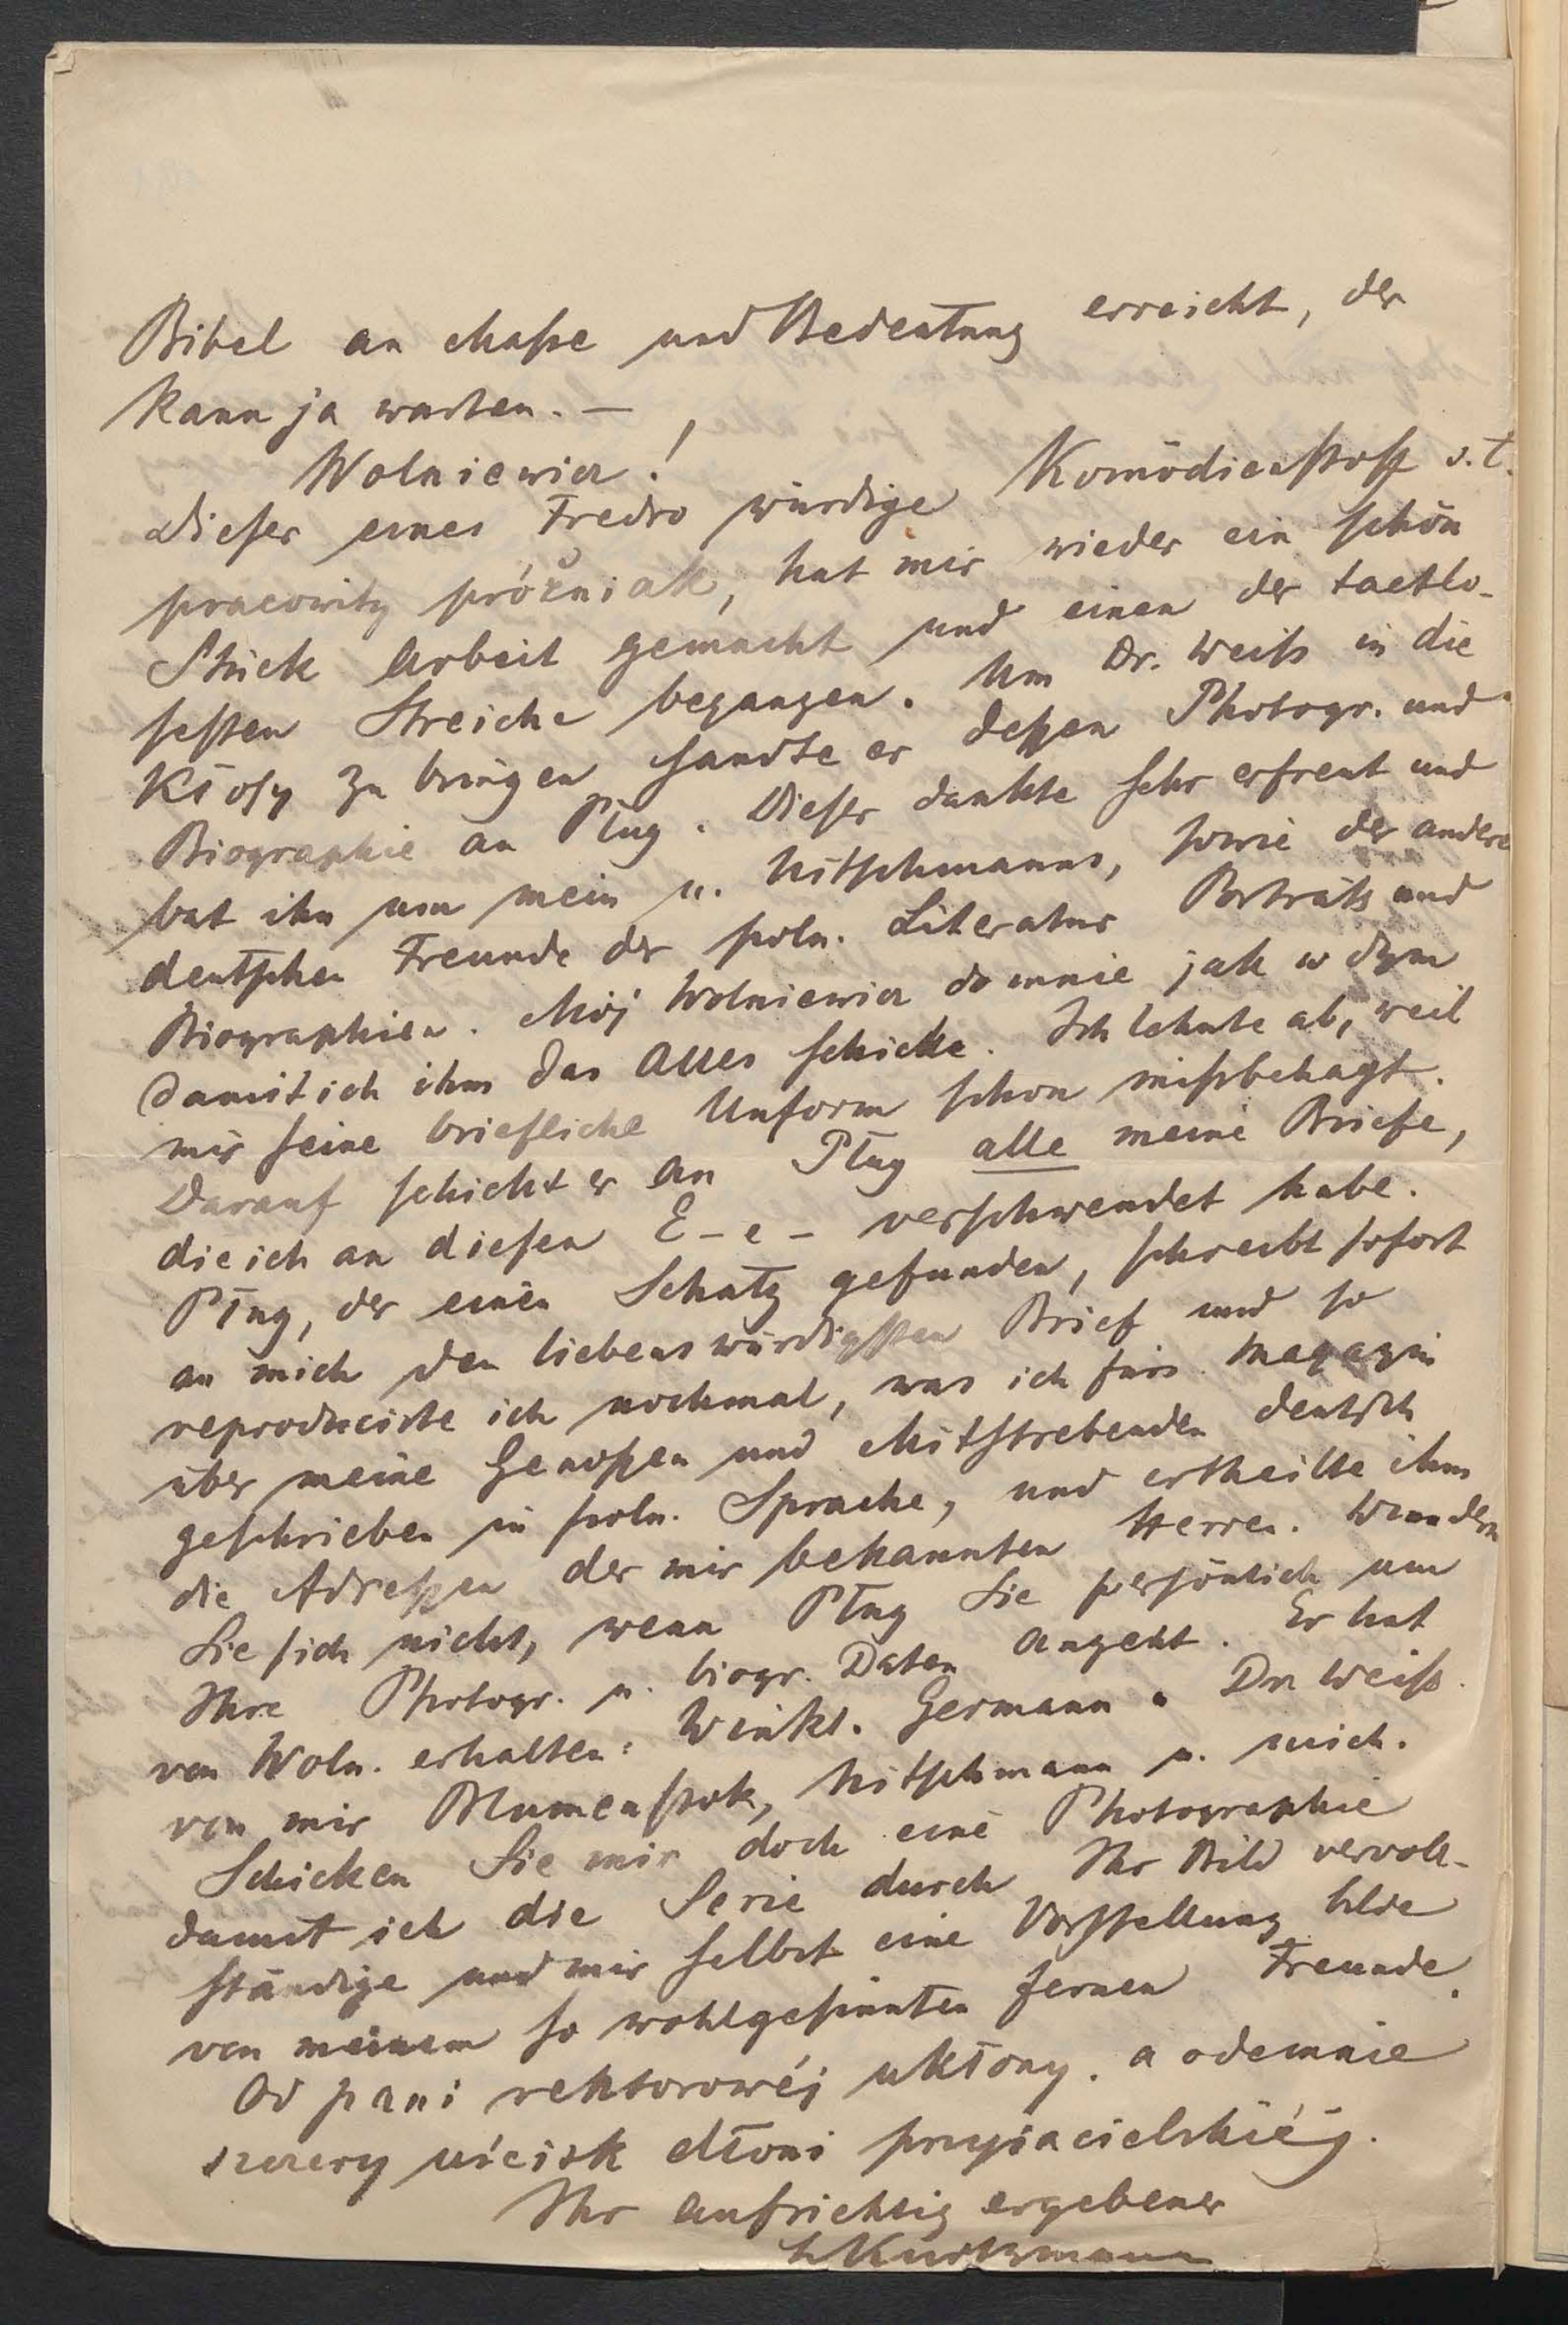 Bibel an Maße und Bedeutung erreicht, der
kann ja warten. —
Wolniewicz!
Dieser eines Fredro würdige Komödienstoff s. t.
pracowity próżniak, hat mir wieder ein schön
Stück Arbeit gemacht und einen der tactlo-
sesten Streiche begangen. Um Dr. Weiß in die
Kłosy zu bringen sandte er deßen Photogr. und
Biographie an Pług. Dieser dankte sehr erfreut und
bat ihn um mein u. Nitschmanns, sowie der andern
deutschen Freunde der poln. Literatur Porträts und
Biographien. Mój Wolniewicz do mnie jak w dym
damit ich ihm das Alles schicke. Ich lehnte ab, weil
mir seine briefliche Unform schon mißbehagt.
Darauf schickt er an Pług alle meine Briefe,
die ich an diesen E-e- verschwendet habe.
Pług, der einen Schatz gefunden, schreibt sofort
an mich den liebenswürdigsten Brief und so
reproducirte ich nochmal, was ich fürs Magazin
über meine Genoßen und Mitstrebenden deutsch
geschrieben in poln. Sprache, und ertheilte ihm
die Adreßen der mir bekannten Herren. Wundern
Sie sich nicht, wenn Pług Sie persönlich um
Ihre Photogr. u. biogr. Daten angeht. Er hat
von Woln. erhalten: Winkl. Germann u Dr. Weiß.
von mir Blumenstok, Nitschmann u. mich.
Schicken Sie mir doch eine Photographie
damit ich die Serie durch Ihr Bild vervoll-
ständige und mir selbst eine Vorstellung bilde
von meinem so wohlgesinnten fernen Freunde.
Od pani rektorowéj ukłony. a odemnie
szczery uścisk dłoni przyjacielskiéj.
Ihr aufrichtig ergebener
Kurtzmann